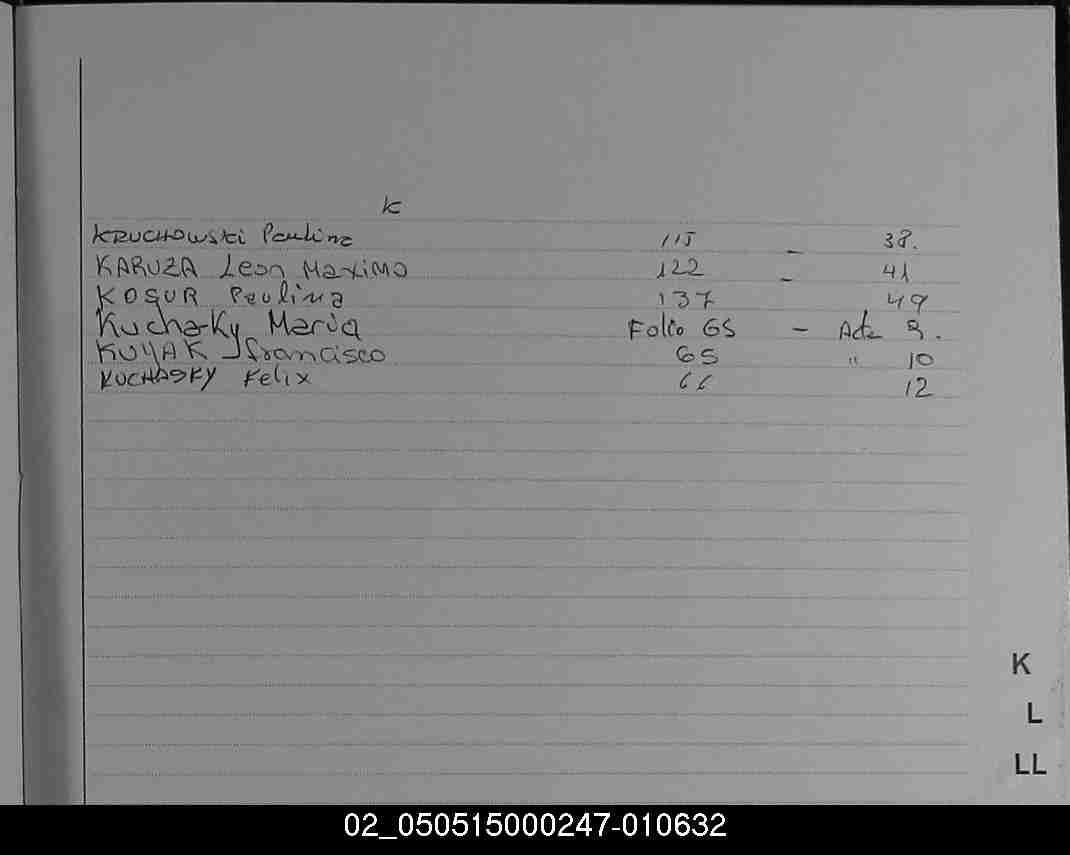 K
KRUCHOWSKI Paulina 115 - 38.
KARUZA Leon Maximo 122 - 41
KOSUR Paulina 137 49
Kucha-Ky Maria Folio 65 - Acta 9.
KUYAK Francisco 65 " 10
KUCHASKY Felix 66 12
K
L
LL
02_050515000247-010632